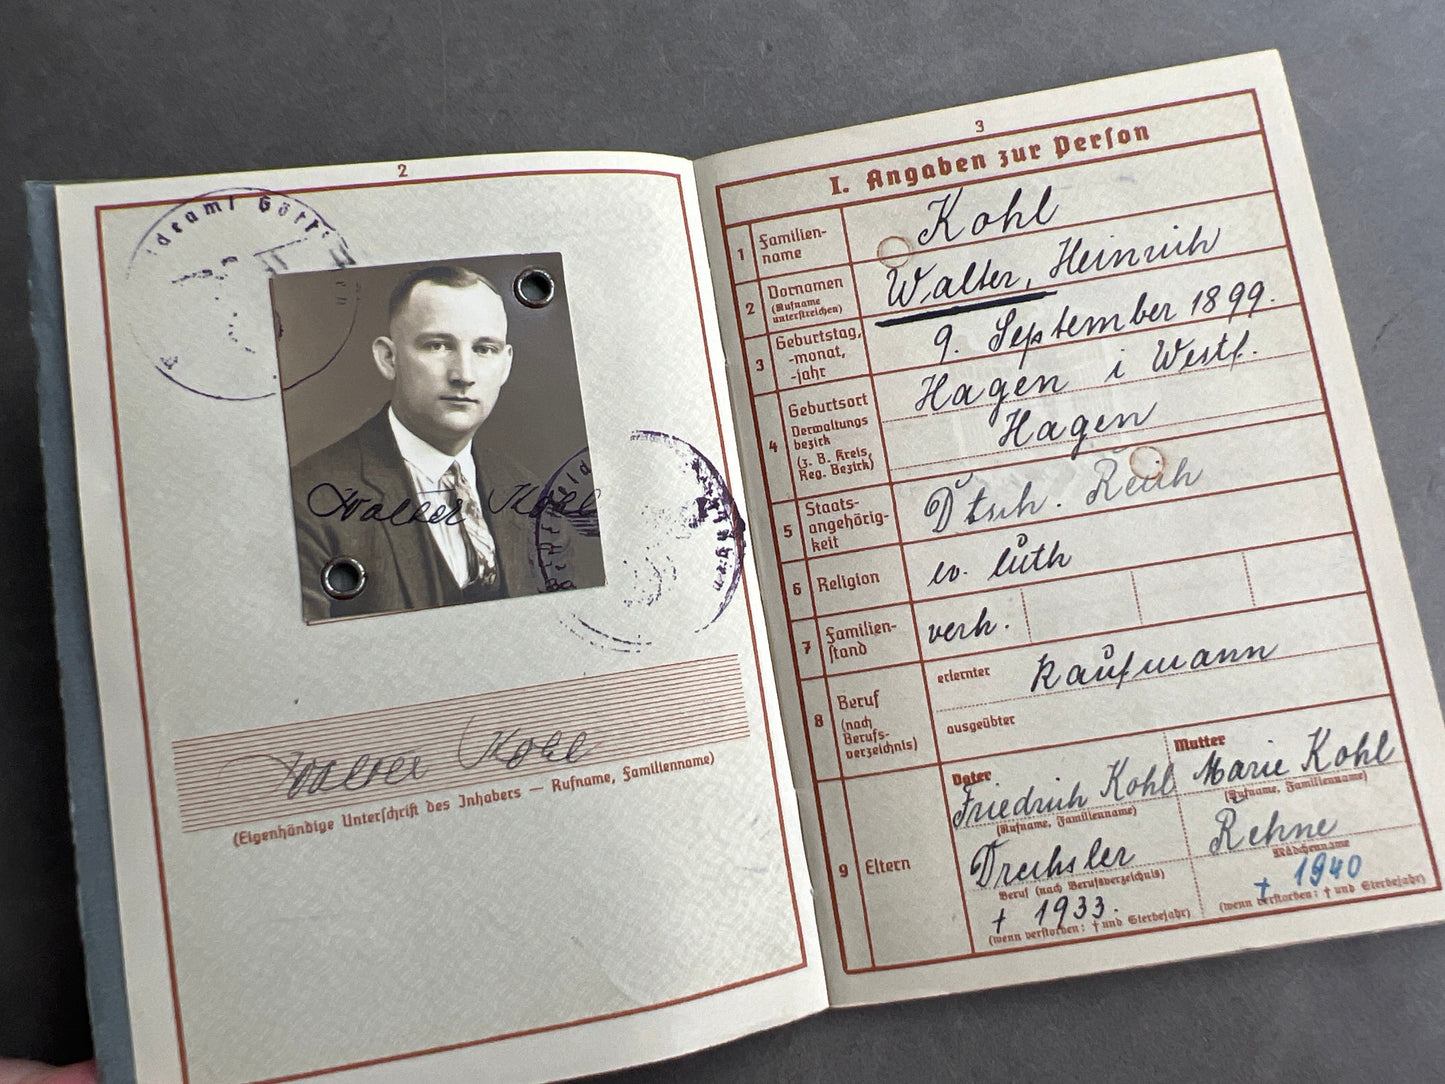 2
Walter Kohl
Walter Kohl
(Eigenhändige Unterschrift des Inhabers — Rufname, Familienname)
3
I. Angaben zur Person
1 Familien-
name
Kohl
2 Vornamen
(Rufname
unterstreichen)
Walter, Heinrich
3 Geburtstag,
-monat,
-jahr
9. September 1899.
4 Geburtsort
Verwaltungs
bezirk
(z. B. Kreis,
Reg. Bezirk)
Hagen i Westf.
Hagen
5 Staats-
angehörig-
keit
Dtsch. Reich
6 Religion
ev. luth
7 Familien-
stand
verh.
8 Beruf
(nach
Berufs-
verzeichnis)
erlernter Kaufmann
ausgeübter
9 Eltern
Vater
Friedrich Kohl
(Rufname, Familienname)
Drechsler
Beruf (nach Berufsverzeichnis)
† 1933.
(wenn verstorben: † und Sterbejahr)
Mutter
Marie Kohl
(Rufname, Familienname)
Rehne
Mädchenname
† 1940
(wenn verstorben: † und Sterbejahr)